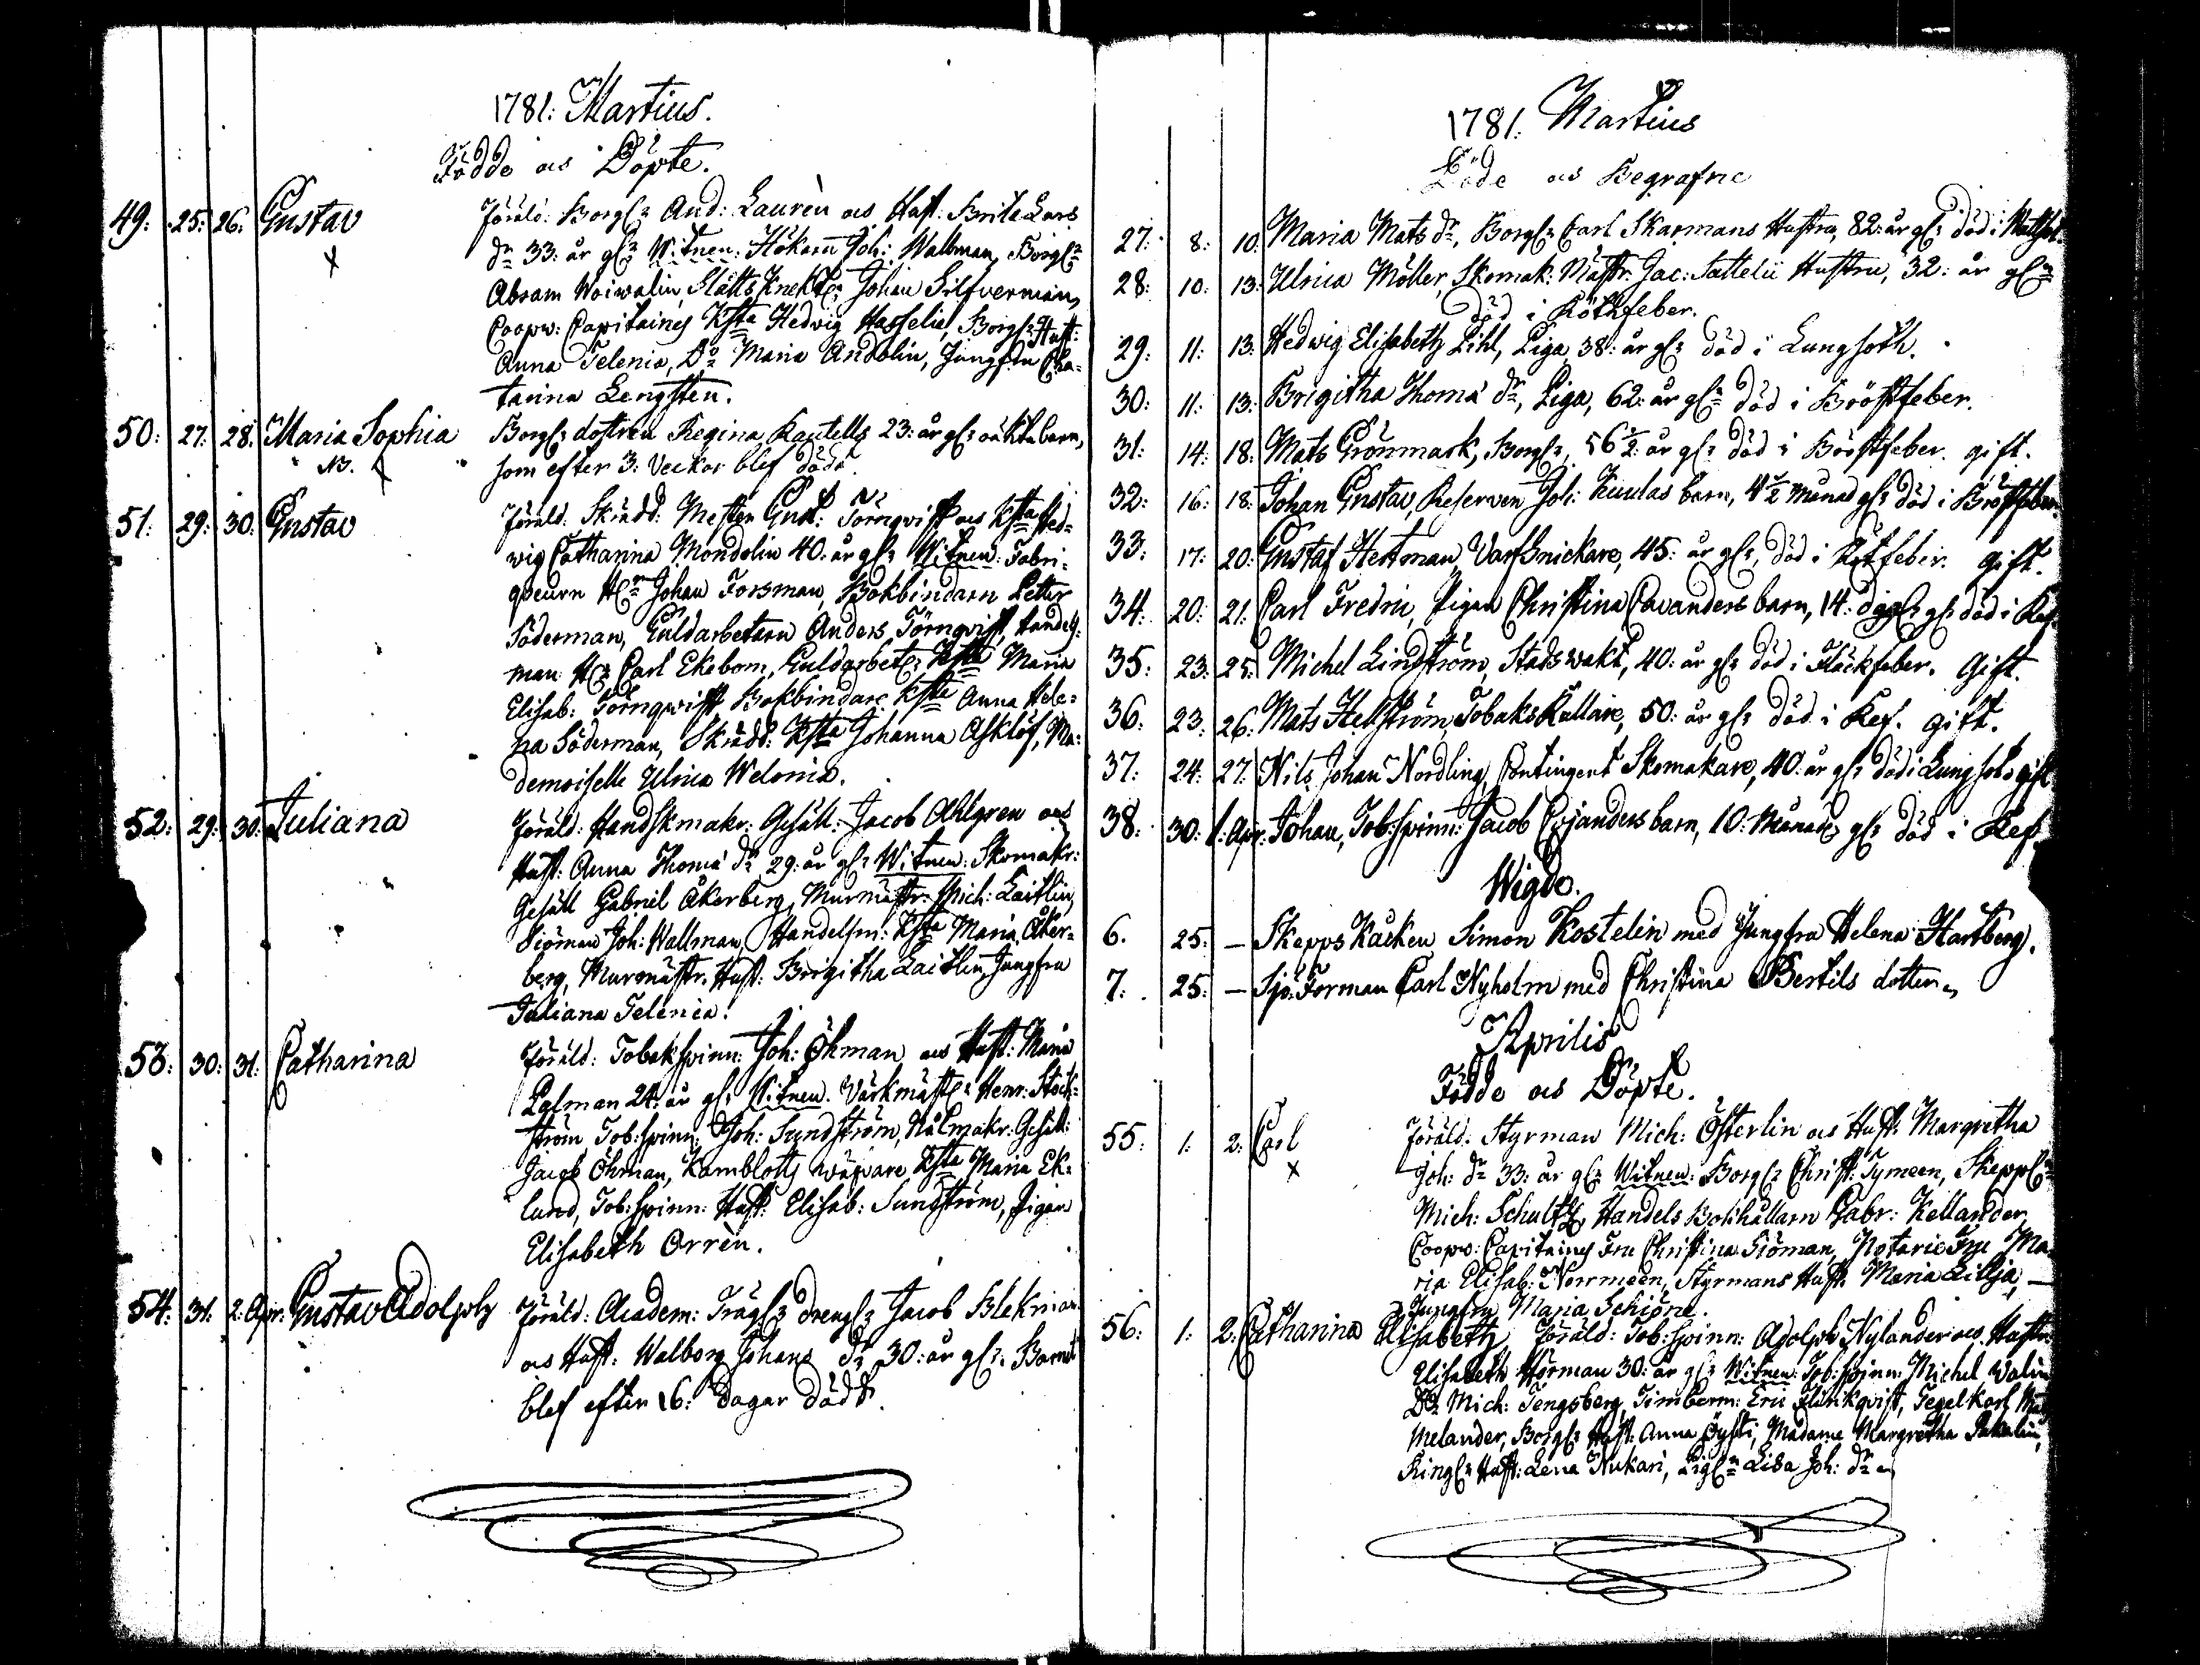 1781: Martius.
Födde och Döpte.
49: 25: 26: Gustav Föräld: Borg: And: Laurèn och Hust: Brita Lars
dr 33: år gl: Witnen: Hökarn Joh: Wallman, Borg:
x
Abram Woivalin, Slåtts Knekt: Johan Silfverman,
Coopv: Capitaines K:sta Hedvig Hasselia, Borg: Hust:
Anna Telenia, Do Maria Andelin, Jungfru Cha-
tarina Lengsten.
50: 27: 28: Maria Sophia Borg: dottren Regina Kantells 23: år gl: oäkta barn,
NB. som efter 3: Veckor blef död.
51: 29: 30: Gustav Föräld: Skrädd: Mesten Gust: Törnqvist och K:sta Hed-
wig Catharina Mondelin 40: år gl: Witnen: Fabri-
qveurn H:r Johan Forsman, Bokbindarn Petter
Söderman, Guldarbetarn Anders Törnqvist, Handels-
man H:r Carl Ekebom, Guldarbet: K:sta Maria
Elisab: Törnqwist, Bokbindare K:sta Anna Hele-
na Söderman, Skrädd: K:sta Johanna Asklöf, Ma-
demoiselle Ulrica Welonia.
52: 29: 30: Juliana Föräld: Handskmakr: Gesäll: Jacob Ahlgren och
Hust: Anna Thomæ dr 29: år gl: Witnen: Skomakr:
Gesäll Gabriel Åkerberg, Murmästr: Mich: Laitlin,
Siöman Joh: Wallman, Handelsm: K:sta Maria Åker-
berg, Murmästr: Hust: Brigitha Laitlin, Jungfru
Juliana Telenia.
53: 30: 31: Catharina Föräld: Tobakspinn: Joh: Öhman och Hust: Maria
Palman 24: år gl: Witnen: Värkmäst: Henr: Stock-
ström Tob: spinn: Joh: Sundström, Nålmakr: Gesäll:
Jacob Öhman, Kamblotts wäfvare K:sta Maria Ek-
lund, Tob: spinn: Hust: Elisab: Sundström, Pigan
Elisabeth Orrèn.
54: 31: 2. Apr: Gustav Adolph Föräld: Academ: Trägl: Drengs: Jacob Blekman
och Hust: Walborg Johans dr 30: år gl: Barnet
blef efter 16: dagar dödt.
1781: Martius
Döde och Begrafne
27: 8: 10: Maria Mats dr, Borg: Carl Skarmans Hustru, 82: år gl: död i
28: 10: 13: Ulrica Möller, Skomak: Mästr: Jac: Sattelii Hustru, 32: år gl:
död i Röthfeber.
29: 11: 13: Hedwig Elisabeth Lihl, Piga, 38: år gl: död i Lungsoth.
30: 11: 13: Brigitha Thomæ dr, Piga, 62: år gl: död i Bröstfeber.
31: 14: 18: Mats Grönmark, Borg:, 56 1/2: år gl: död i Bröstfeber. gift.
32: 16: 18: Johan Gustav, Reserven Joh: barn, 4 1/2 Månad gl: död i Bröstfeber.
33: 17: 20: Gustaf Hertman Varfsnickare, 45: år gl: död i Rötfeber. gift.
34: 20: 21: Carl Fredric, Pigan Christina Cavanders barn, 14: dag: gl: död i Kef.
35: 23: 25: Michel Lindström, Stadswakt, 40: år gl: död i Fläckfeber. Gift.
36: 23: 26: Mats Hellström, Tobaks Kallare, 50: år gl: död i Kef. gift.
37: 24: 27: Nils Johan Nordling, Contingent Skomakare, 40: år gl: död i Lungsot. gift
38: 30: 1. Apr: Johan, Tob: spinn: Jacob barn, 10: Månad gl: död i Kef.
Wigde.
6. 25: — Skepps Käcken Simon Kostelin med Jungfru Helena Hartberg.
7: 25: — Sjö: Forman Carl Nyholm med Christina Bertils dotter.
Aprilis
Födde och Döpte.
55: 1: 2: Carl Föräld: Styrman Mich: Österlin och Hust: Margretha
x Joh: dr 33: år gl: Witnen: Borg: Christ: Tymeen, Skepp:
Mich: Schultz, Handels Bokhållarn Gabr: Kellander,
Coopv: Capitaines Fru Christina Siöman, Notarie Fru Ma-
ria Elisab: Norrmeen, Styrmans Hust: Maria Lillja, —
Jungfru Maria Schiöne.
56: 1: 2: Catharina Elisabeth Föräld: Tob: spinn: Adolph Nylander och Hustru
Elisabeth Hörman 30: år gl: Witnen: Tob: spinn: Michel Walin
Do Mich: Tengsberg, Timberm: Eric Flinkqvist, Tegelkarl
Melander, Borg: Hust: Anna Öysti, Madame Margretha
Ringl: Hust: Lena Nukari, Pig: Lisa Joh: dr